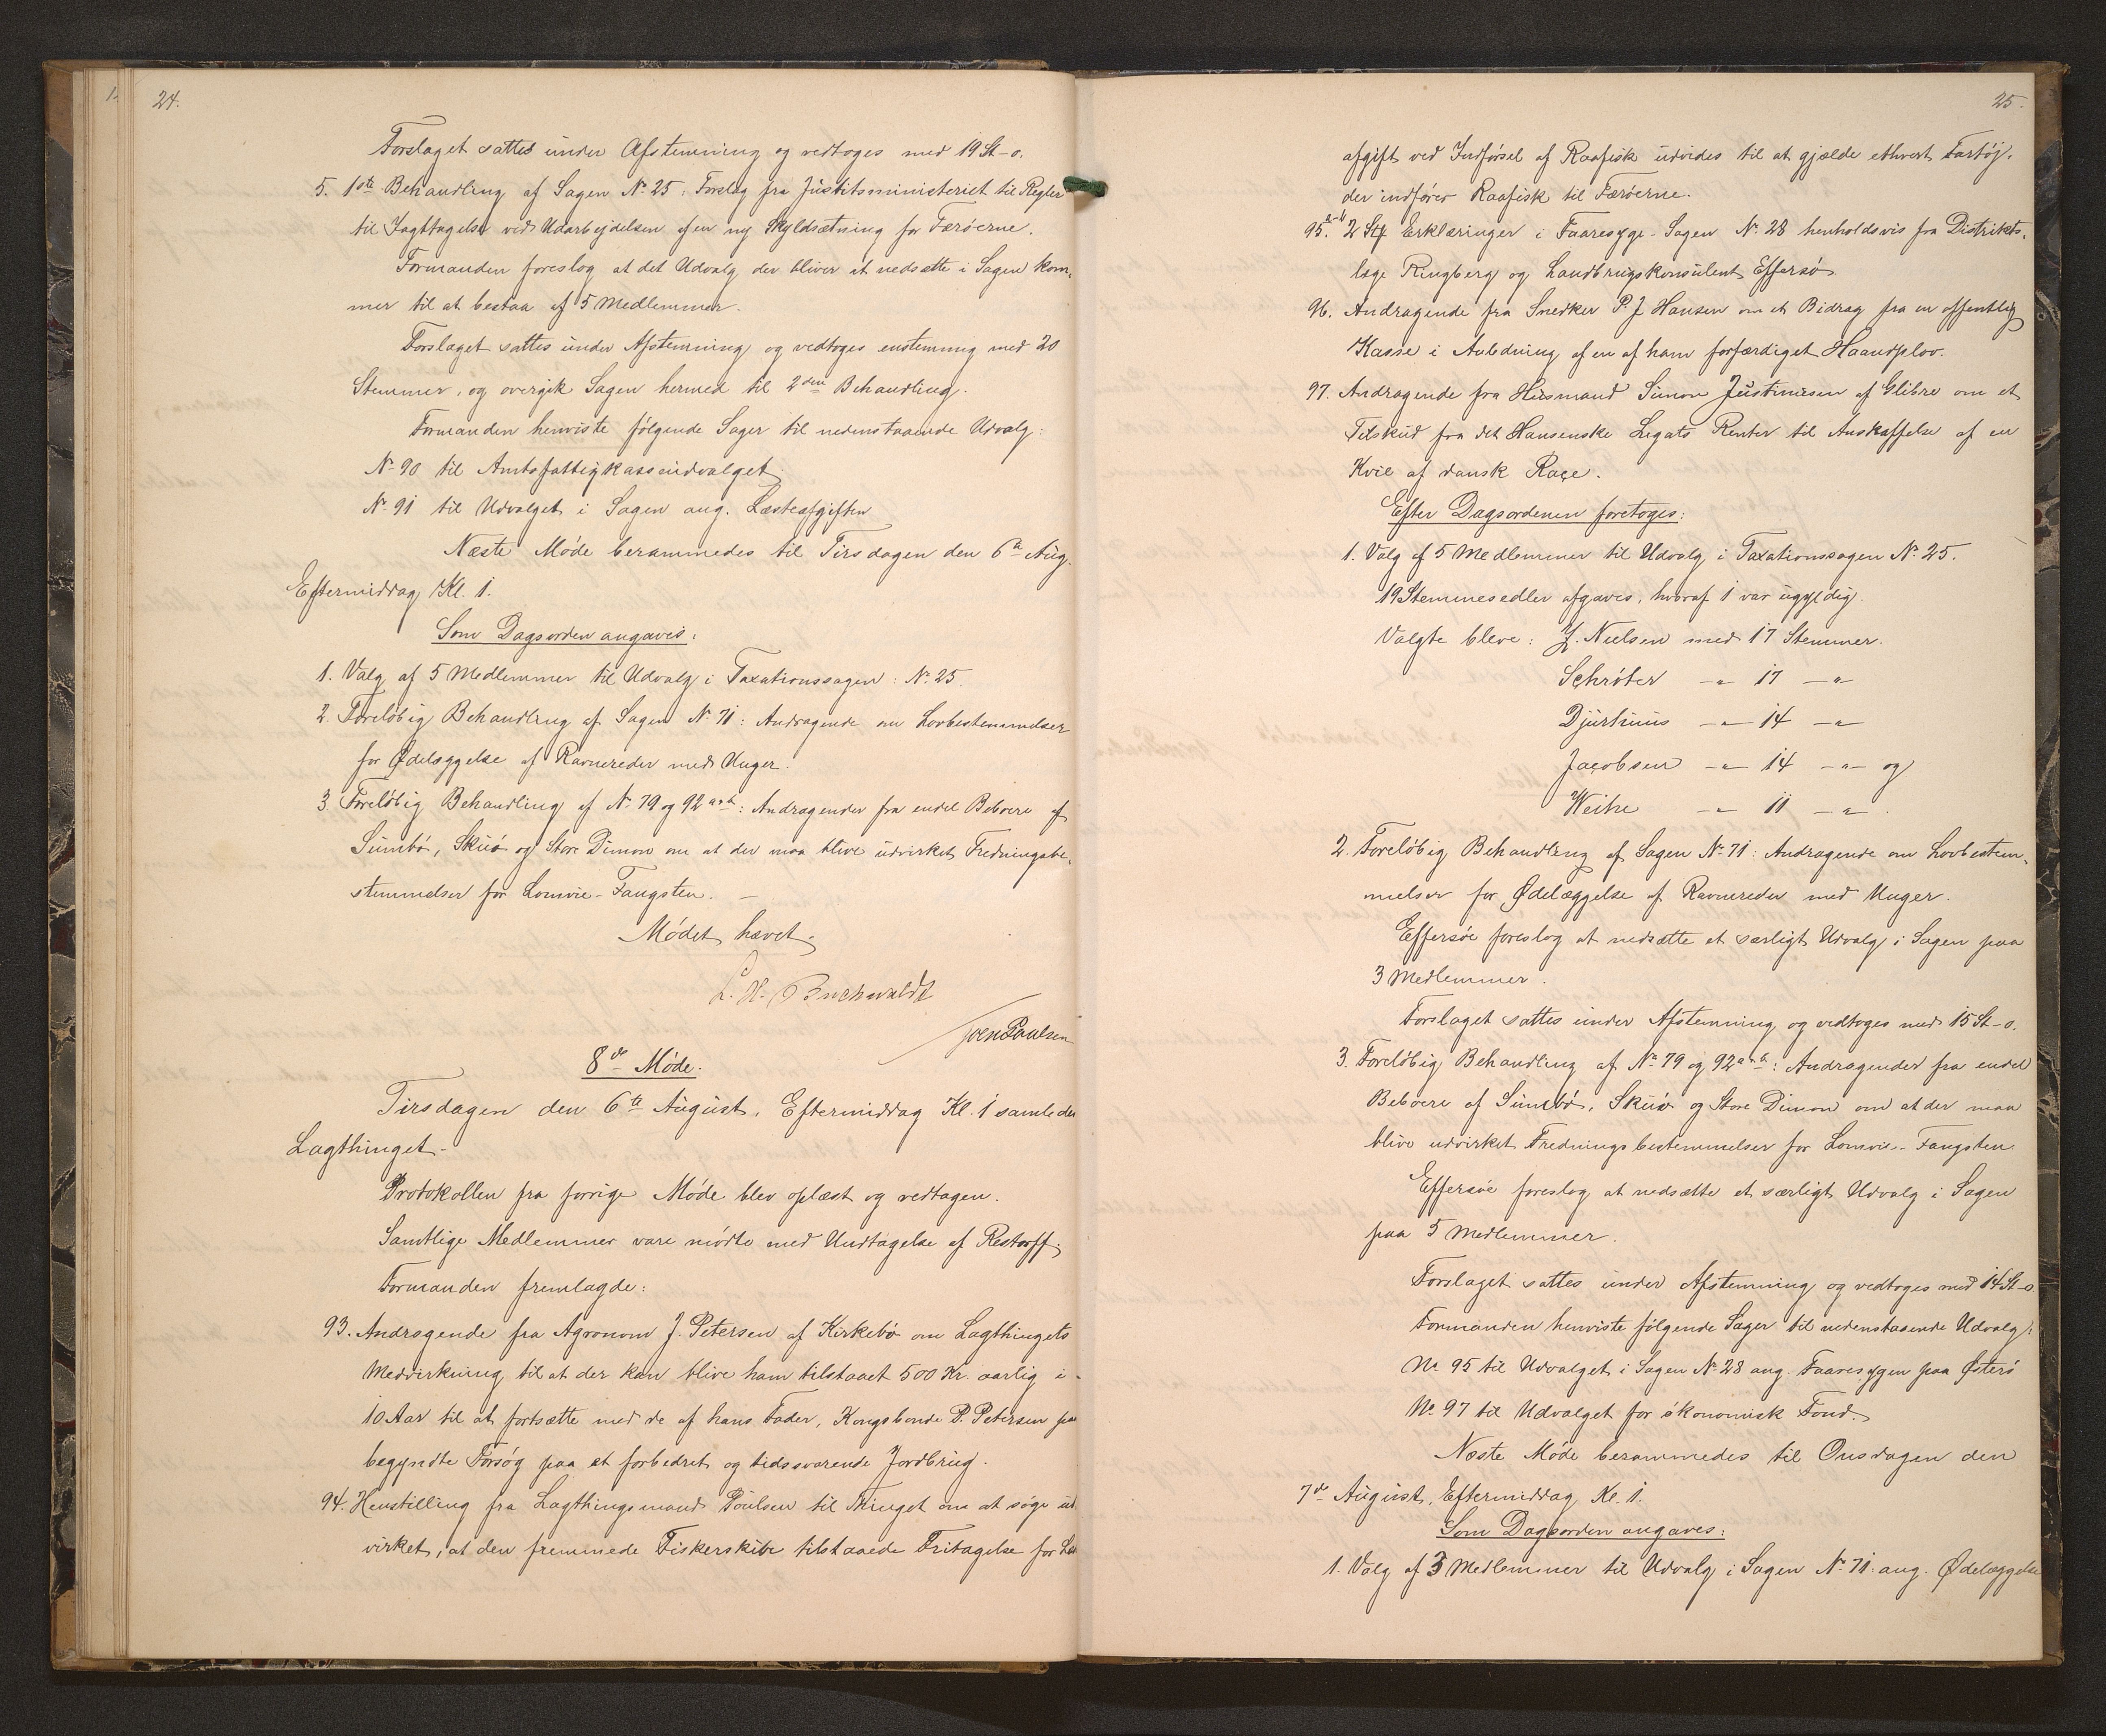 24.
Forslaget sattes under Afstemning og vedtoges med 19 St-0.
5. 1ste Behandling af Sagen No 25: Forslag fra Justitsministeriet til Regler
til Iagttagelse ved Udarbejdelsen af en ny Skyldsætning for Færöerne.
Formanden foreslog at det Udvalg der bliver at nedsætte i Sagen kom-
mer til at bestaa af 5 Medlemmer.
Forslaget sattes under Afstemning og vedtoges enstemmig med 20
Stemmer, og overgik Sagen hermed til 2den Behandling.
Formanden henviste følgende Sager til nedenstaaende Udvalg:
No 90 til Amtsfattigkasseudvalget
No 91 til Udvalget i Sagen ang. Læsteafgiften
Næste Møde berammedes til Tirsdagen den 6te Aug.
Eftermiddag Kl. 1.
Som Dagsorden angaves:
1. Valg af 5 Medlemmer til Udvalg i Taxationssagen: No 25.
2. Foreløbig Behandling af Sagen No 71: Andragende om Lovbestemmelser
for Ødelæggelse af Ravnereder med Unger.
3. Foreløbig Behandling af No 79 og 92 a&b: Andragender fra endel Beboere af
Sumbø, Skuø og Store Dimon om at der maa blive udvirket Fredningsbe-
stemmelser for Lomvie-Fangsten. —
Mødet hævet.
L. H. Buchwaldt
Joen Poulsen
8de Møde.
Tirsdagen den 6te August, Eftermiddag Kl. 1 samledes
Lagthinget.
Protokollen fra forrige Møde blev oplæst og vedtagen.
Samtlige Medlemmer vare mødte med Undtagelse af Restorff.
Formanden fremlagde:
93. Andragende fra Agronom J. Petersen af Kirkebø om Lagthingets
Medvirkning til at der kan blive ham tilstaaet 500 Kr. aarlig i
10 Aar til at fortsætte med de af hans Fader, Kongsbonde P. Petersen paa
begyndte Forsøg paa et forbedret og tidssvarende Jordbrug.
94. Henstilling fra Lagthingsmand Poulsen til Thinget om at søge ud-
virket, at den fremmede Fiskerskibe tilstaaede Fritagelse for
25.
afgift ved Indførsel af Raafisk udvides til at gjælde ethvert Fartøj,
der indfører Raafisk til Færöerne.
95. a-b 2 Stk Erklæringer i Faaresyge-Sagen No 28 henholdsvis fra Distrikts-
læge Ringberg og Landbrugskonsulent Effersø
96. Andragende fra Snedker P. J Hansen om et Bidrag fra en offentlig
Kasse i Anledning af en af ham forfærdiget Haandplov.
97. Andragende fra Husmand Simon Justinussen af Glibre om et
Tilskud fra det Hansenske Legats Renter til Anskaffelse af en
Kvie af dansk Raçe.
Efter Dagsordenen foretoges:
1. Valg af 5 Medlemmer til Udvalg i Taxationssagen No 25.
19 Stemmesedler afgaves, hvoraf 1 var ugyldig.
Valgte bleve: Z. Nielsen med 17 Stemmer.
Schrøter —"— 17 —"—
Djurhuus —"— 14 —"—
Jacobsen —"— 14 —"— og
Weihe —"— 11 —"—.
2. Foreløbig Behandling af Sagen No 71: Andragende om Lovbestem-
melser for Ødelæggelse af Ravnereder med Unger.
Effersøe foreslog at nedsætte et særligt Udvalg i Sagen paa
3 Medlemmer.
Forslaget sattes under Afstemning og vedtoges med 15 St-0.
3. Foreløbig Behandling af No 79 og 92 a&b: Andragender fra endel
Beboere af Sumbø, Skuø og Store Dimon om at der maa
blive udvirket Fredningsbestemmelser for Lomvie-Fangsten
Effersøe foreslog at nedsætte et særligt Udvalg i Sagen
paa 5 Medlemmer.
Forslaget sattes under Afstemning og vedtoges med 14 St-0
Formanden henviste følgende Sager til nedenstaaende Udvalg:
No 95 til Udvalget i Sagen No 28 ang. Faaresygen paa Østerø
No 97 til Udvalget for økonomisk Fond.
Næste Møde berammedes til Onsdagen den
7de August, Eftermiddag Kl. 1.
Som Dagsorden angaves:
1. Valg af 3 Medlemmer til Udvalg i Sagen No 71. ang. Ødelæggelse